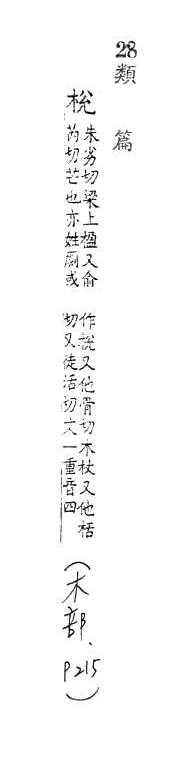 28類篇
梲
朱劣切梁上楹又俞
芮切芒也亦姓或
作說又他骨切木杖又他栝
切又徒活切文一重音四
(木部、P215)